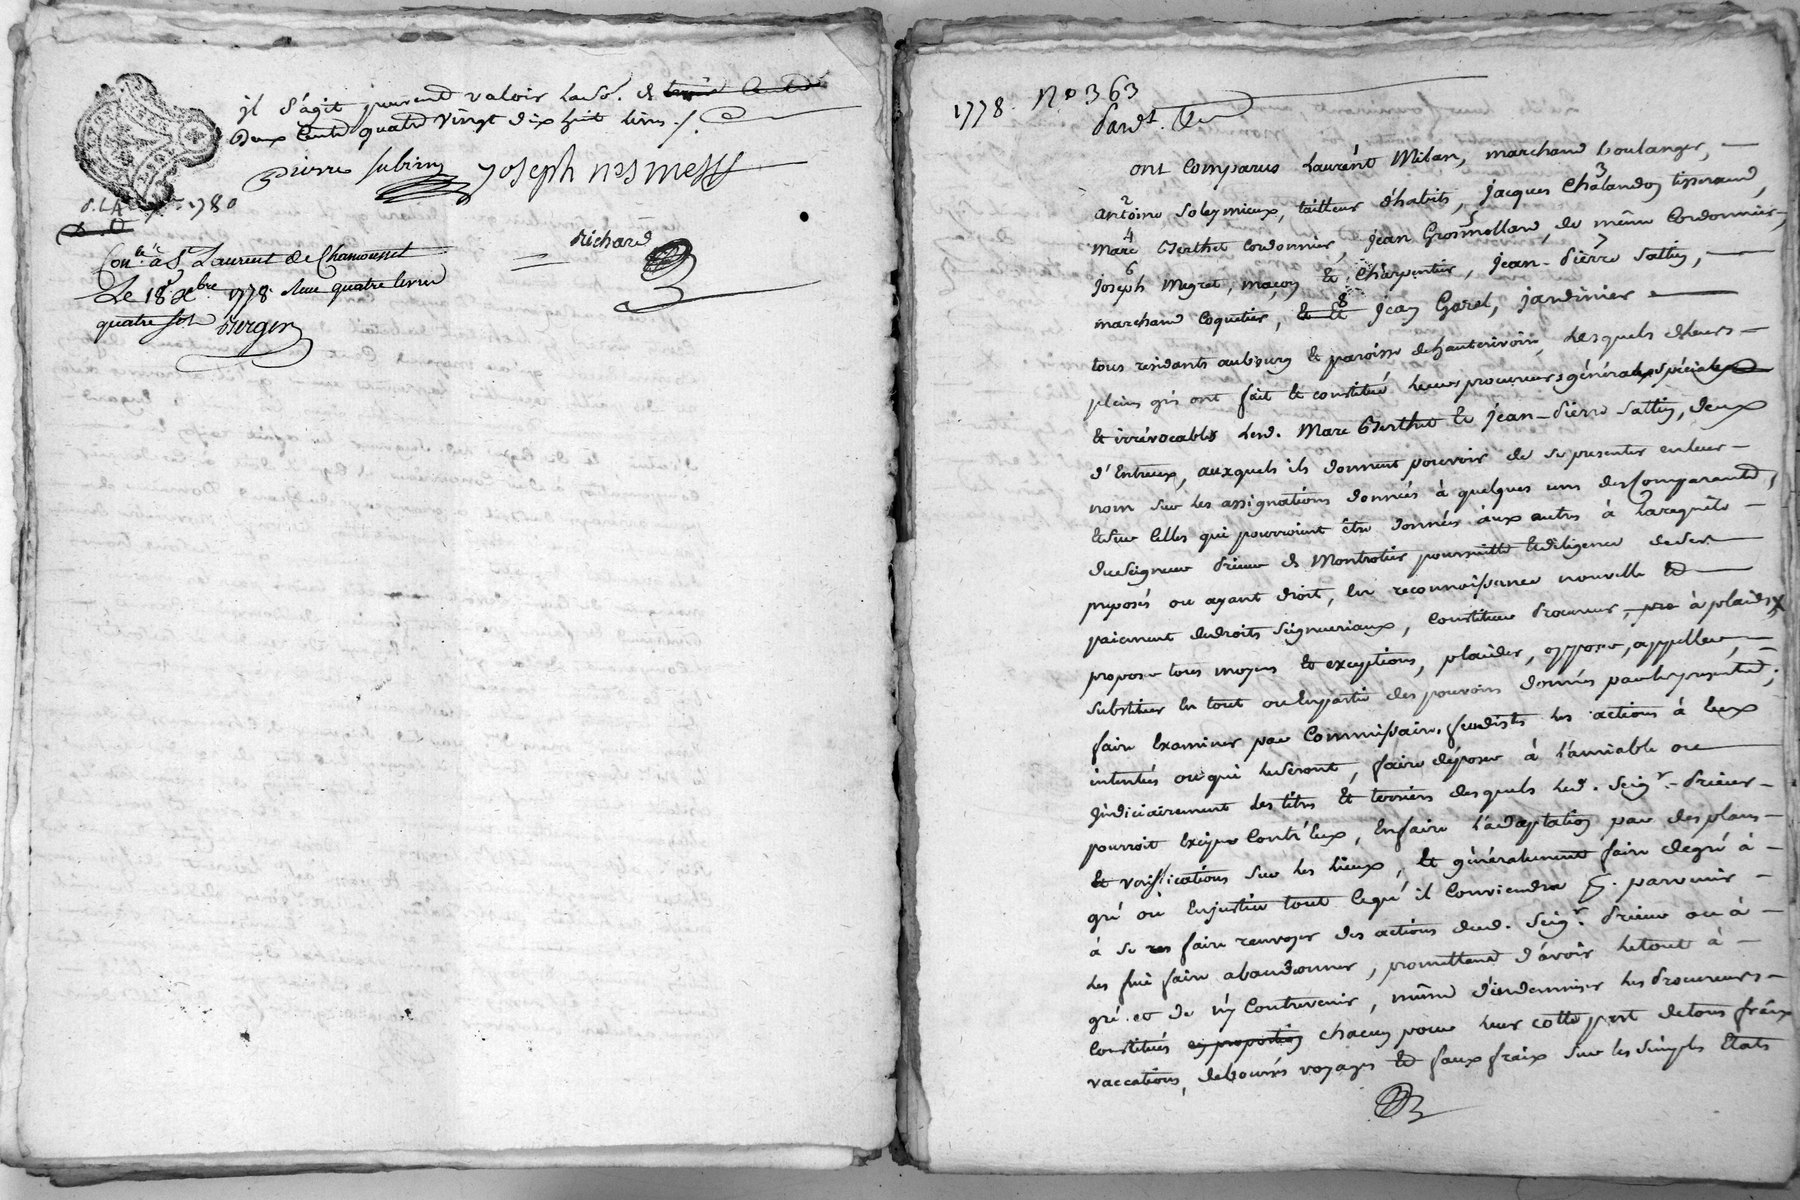 il s'agit pouvant valoir lad. de
Deux Cents quatre vingt dix huit livres /.
pierre subrin joseph nesmess
1780
Richard
Con.lé à St Laurent de Chamousset
Le 18e Xbre 1778. Reçu quatre livres
quatre sols Burgen
1778. No 363
Pardt.
ont Comparus Laurént Milan, marchand boulanger, —
2 3
Antoine Soleymieux, tailleur d'habits, jacques Chalandon tisserand,
4 5
Marc Berthet Cordonnier, jean Grosmolland, de même Cordonnier,
6 7
joseph Megret, maçon & Charpentier, jean-Pierre Sattin, —
8
marchand Coquetier, et & jean Garel, jardinier —
tous résidants au bourg & paroisse de hauterivoire, Lesquels de leurs —
pleins grés ont fait & constitué leurs procureurs généraux spéciales
& irrévocables Lesd. Marc Berthet & jean-Pierre Sattin, deux
d'Entreux, auxquels ils donnent pouvoir de se presenter en leur —
nom sur les assignations données à quelques uns des Comparants,
& sur Celles qui pourroient être données aux autres à la requête —
du Seigneur Prieur de Montrotier poursuitte & diligence de ses —
préposés ou ayant droit, En reconnaissance nouvelle & —
paiement de droits Seigneuriaux, Constituer Procureur, pro à plaids x
proposer tous moyens & exceptions, plaider, opposer, appeller, —
substituer En tout ou En partie des pouvoirs donnés par les presentes;
faire Examiner par Commissaire feudiste les actions à Eux
intentées ou qui le seront, faire déposer à l'amiable ou —
judiciairement les titres & terriers desquels led. Seigr. Prieur —
pourroit Exciper Contr'Eux, En faire l'adaptation par des plans —
& vérifications sur les lieux, & généralement faire de gré à —
gré ou En justice tout Ce qu'il Conviendra pr. parvenir —
à se res faire renvoyer des actions dud. Seigr. Prieur ou à —
les faire abandonner, promettant d'avoir le tout à —
gré et de n'y Contrevenir, même d'indemniser les Procureurs —
Constitués en proportion chacun pour leur cotte part de tous fraix
vaccations, debourses voyages & faux fraix sur les simples États